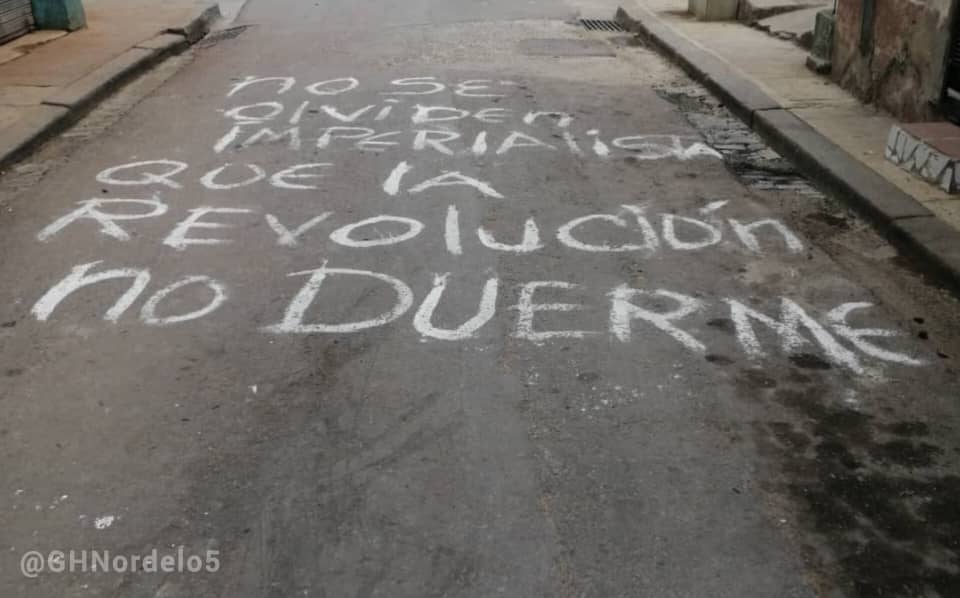 no SE
OLViDEn
IMPERiALiSM
QUE LA
REVOLUCiÓn
no DUERME
@GHNordelo5